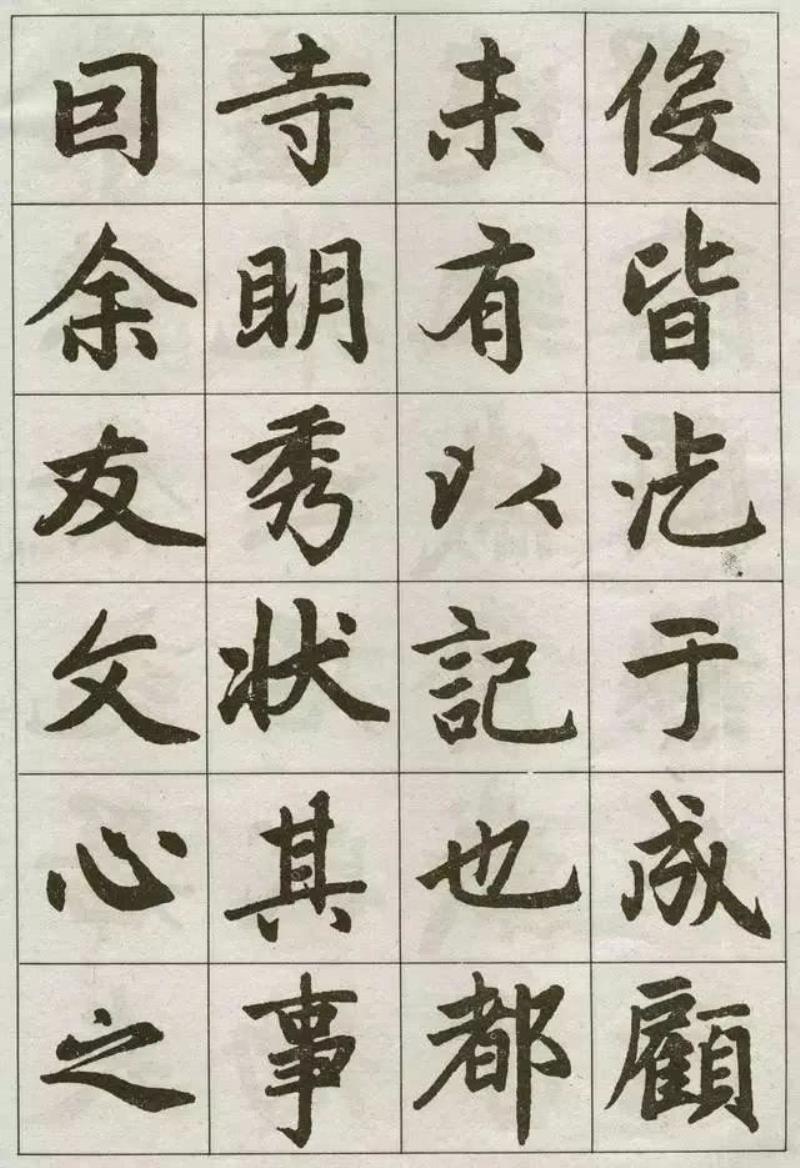 伇皆汔于成顧
未有以記也都
寺明秀状其事
囙余友文心之